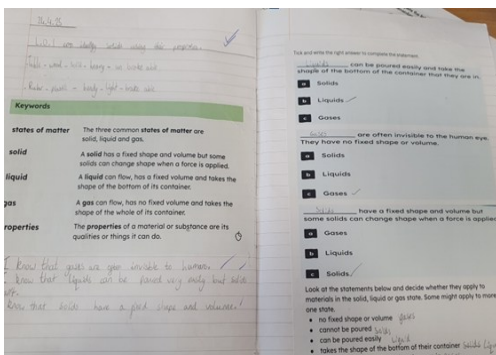 L.O: I can identify solids using their properties.
Table - wood - solid - heavy
Ruler - plastic - bendy - light
Keywords
states of matter The three common states of matter are
solid, liquid and gas.
solid A solid has a fixed shape and volume but some
solids can change shape when a force is applied.
liquid A liquid can flow, has a fixed volume and takes the
shape of the bottom of its container.
gas A gas can flow, has no fixed volume and takes the
shape of the whole of its container.
roperties The properties of a material or substance are its
qualities or things it can do.
I know that gases are invisible to humans.
I know that liquids can be poured very easily but solids
know that solids have a fixed shape and volume.
Tick and write the right answer to complete the statement.
Liquids can be poured easily and take the
shape of the bottom of the container that they are in.
a Solids
b Liquids
c Gases
are often invisible to the human eye.
They have no fixed shape or volume.
a Solids
b Liquids
c Gases
Solids have a fixed shape and volume but
some solids can change shape when a force is applied
a Gases
b Liquids
c Solids
Look at the statements below and decide whether they apply to
materials in the solid, liquid or gas state. Some might apply to more
one state.
• no fixed shape or volume gases
• cannot be poured solids
• can be poured easily liquid
• takes the shape of the bottom of their container